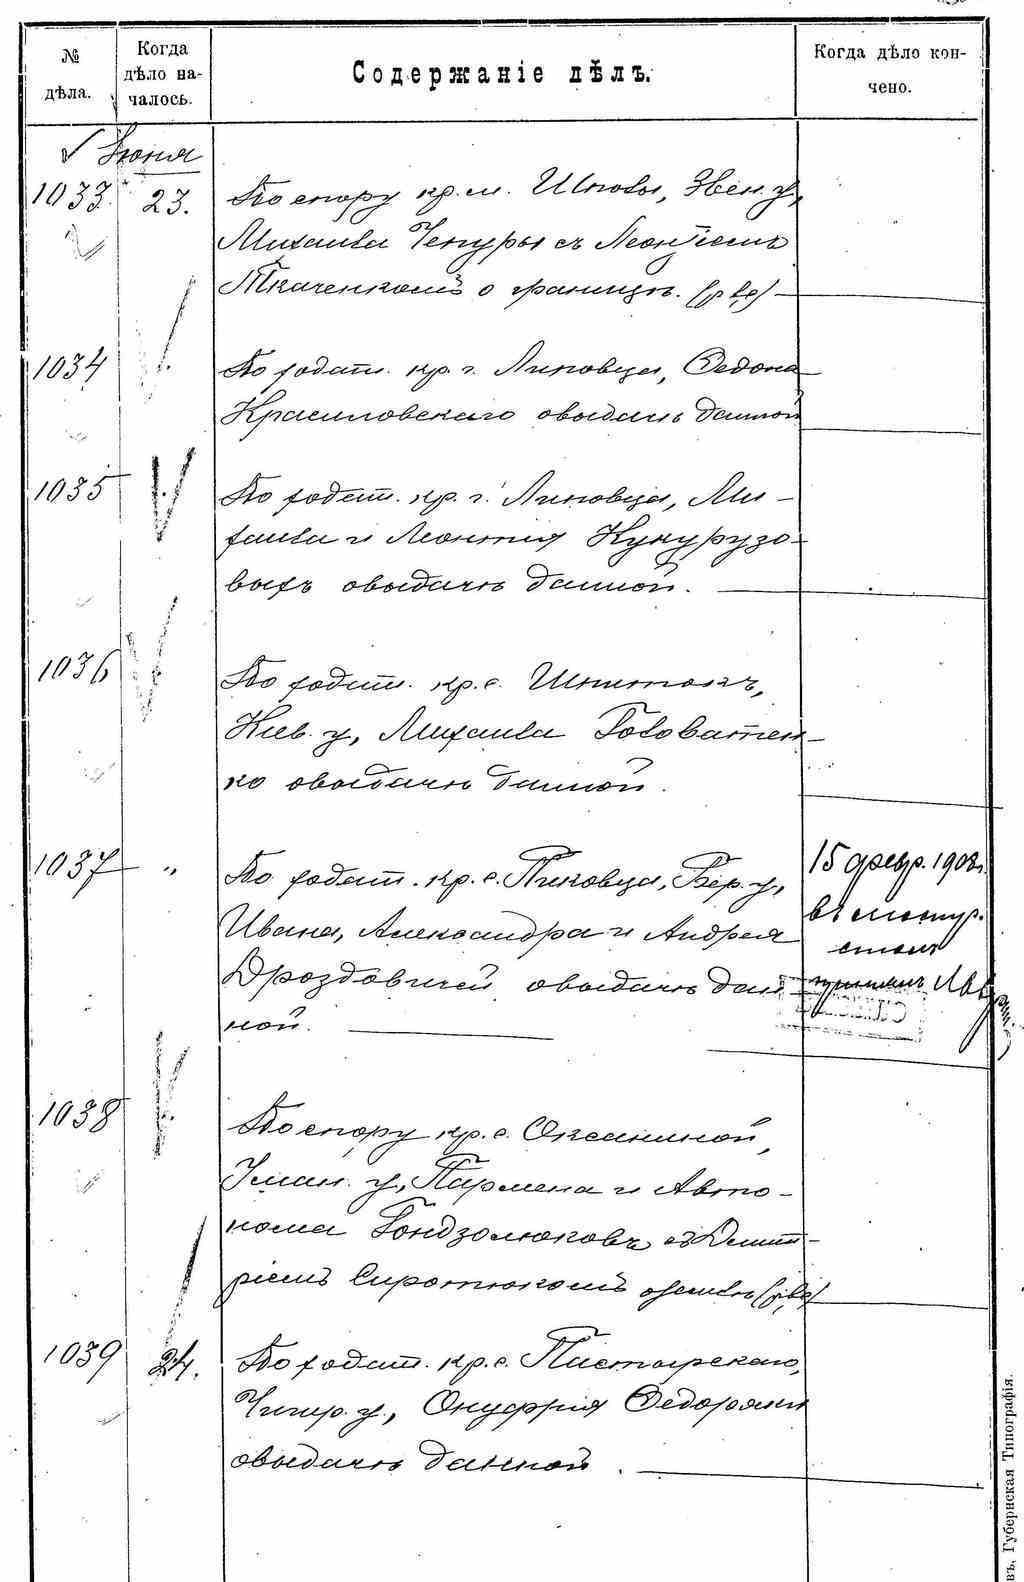 № дѣла.
Когда дѣло началось.
Содержаніе дѣлъ.
Когда дѣло кончено.
Іюня
1033. 23. По спору кр. м. Шполы, Звен. у,
Михаила Чепуры съ Леонтіемъ
Ткаченкомъ о границѣ.
1034 По ходат. кр. г. Липовца, Федота
Красиловскаго о выдачѣ данной
1035 По ходат. кр. г. Липовца, Ми-
хаила и Леонтія Кукурузо-
выхъ о выдачѣ данной.
1036 По ходат. кр. с. Шпитокъ,
Кіев. у, Михаила Головатен-
ко о выдачѣ данной.
1037 „ По ходат. кр. с. Пиковца, Бер. у,
Ивана, Александра и Андрея
Дроздовичей о выдачѣ дан-
ной.
15 февр. 1908 г.
въ
1038 По спору кр. с. Оксаниной,
Уман. у, Пармена и Авто-
нома Гондзолюковъ съ Дмит-
ріемъ Сиротюкомъ о землѣ
1039 24. По ходат. кр. с. Пастырскаго,
Чигир. у., Онуфрія Федоряки
о выдачѣ данной.
въ, Губернская Типографія.